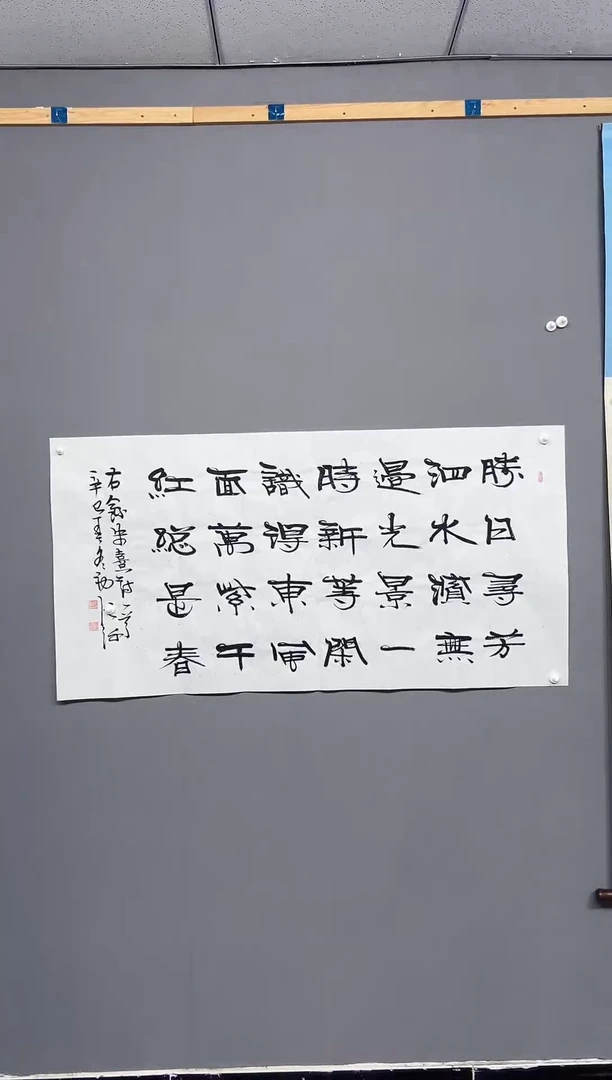 勝日尋芳
泗水濱無
邊光景一
時新等閑
識得東風
面萬紫千
紅總是春
右錄朱熹詩一首